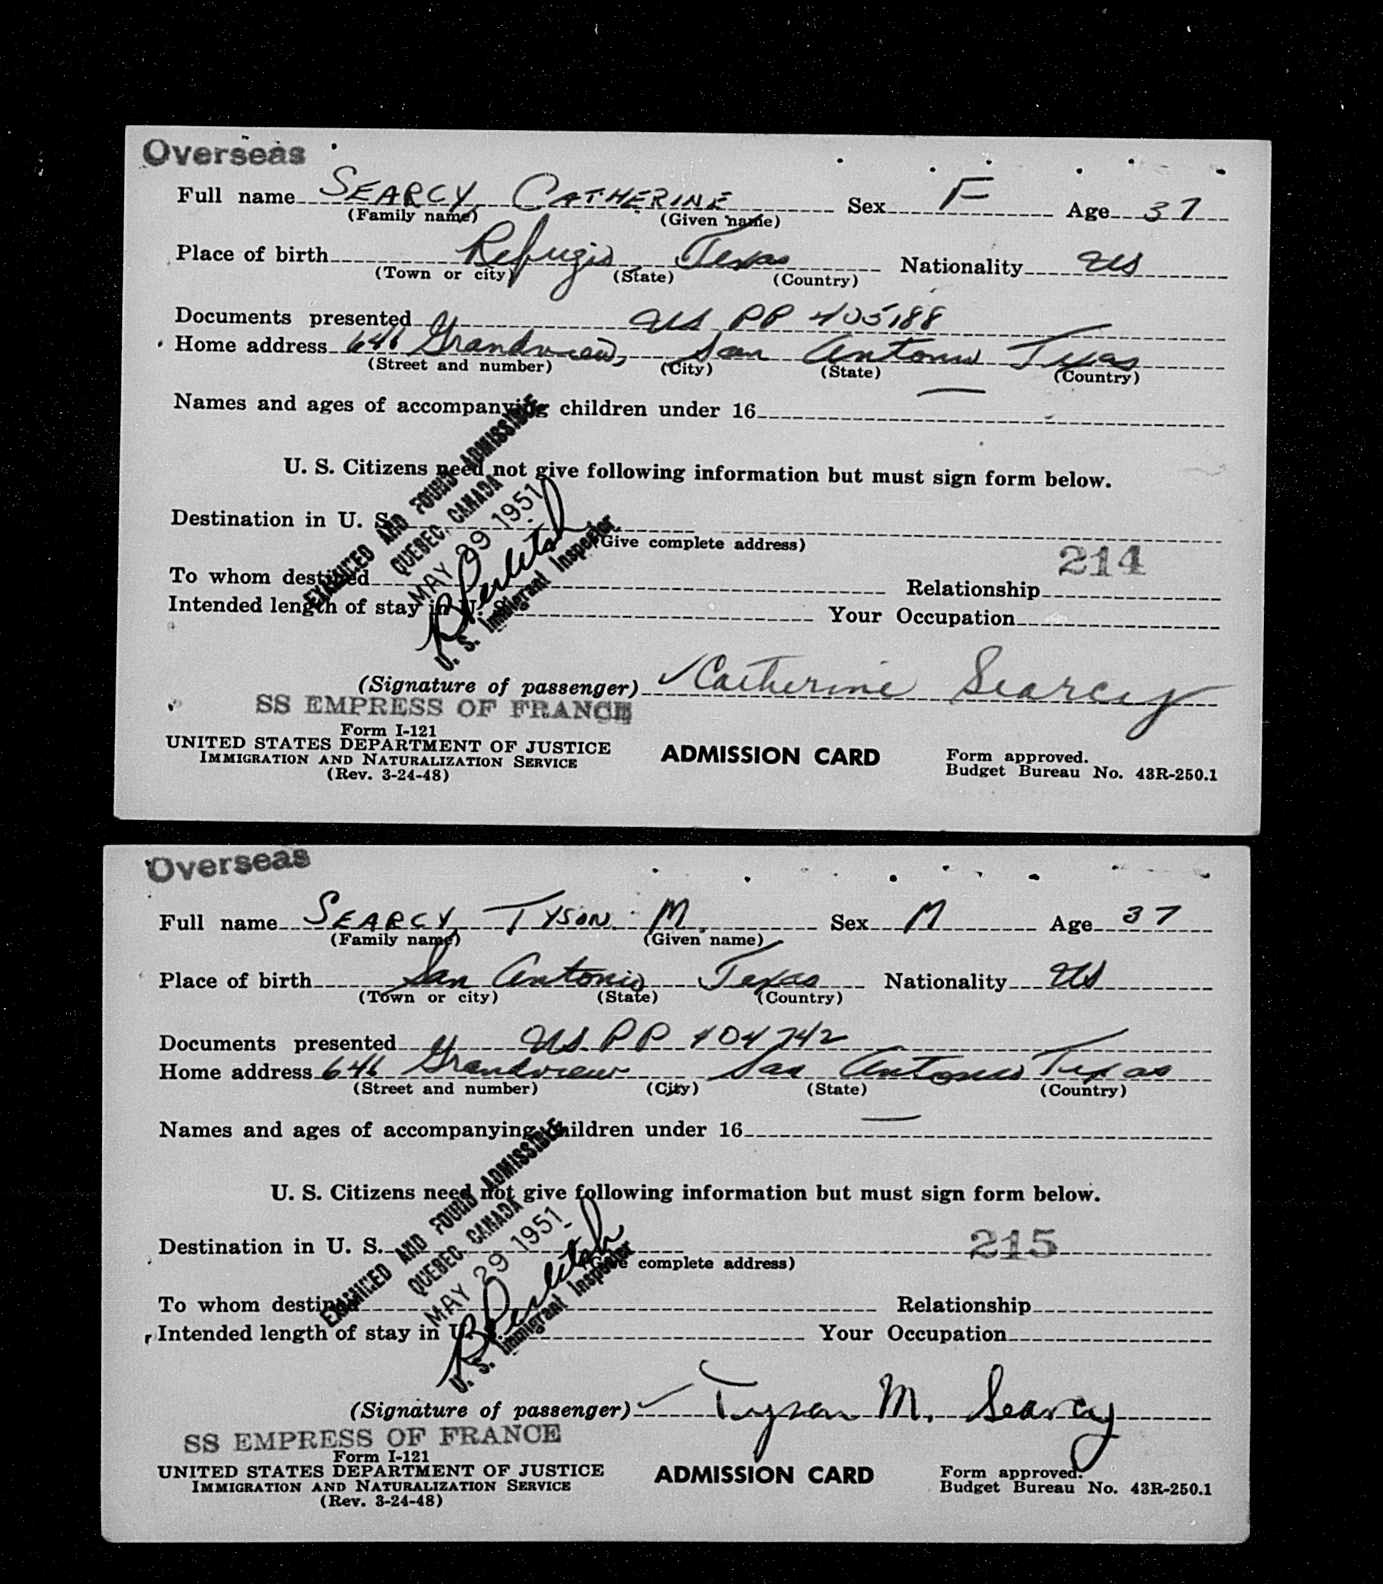 Overseas
Full name SEARCY, CATHERINE Sex F Age 37
(Family name) (Given name)
Place of birth Refugio, Texas Nationality US
(Town or city) (State) (Country)
Documents presented US PP 405188
Home address 646 Grandview, San Antonio Texas
(Street and number) (City) (State) (Country)
Names and ages of accompanying children under 16 —
U. S. Citizens need not give following information but must sign form below.
Destination in U. S.
(Give complete address)
214
To whom destined Relationship
Intended length of stay in U. S. Your Occupation
EXAMINED AND FOUND ADMISSIBLE
QUEBEC, CANADA
MAY 29 1951
U. S. Immigrant Inspector
(Signature of passenger) ✓ Catherine Searcy
SS EMPRESS OF FRANCE
Form I-121
UNITED STATES DEPARTMENT OF JUSTICE
IMMIGRATION AND NATURALIZATION SERVICE
(Rev. 3-24-48)
ADMISSION CARD
Form approved.
Budget Bureau No. 43R-250.1
Overseas
Full name SEARCY, TYSON M. Sex M Age 37
(Family name) (Given name)
Place of birth San Antonio Texas Nationality US
(Town or city) (State) (Country)
Documents presented US PP 404742
Home address 646 Grandview San Antonio Texas
(Street and number) (City) (State) (Country)
Names and ages of accompanying children under 16 —
U. S. Citizens need not give following information but must sign form below.
Destination in U. S. 215
(Give complete address)
To whom destined Relationship
Intended length of stay in U. S. Your Occupation
EXAMINED AND FOUND ADMISSIBLE
QUEBEC, CANADA
MAY 29 1951
U. S. Immigrant Inspector
(Signature of passenger) ✓ Tyson M. Searcy
SS EMPRESS OF FRANCE
Form I-121
UNITED STATES DEPARTMENT OF JUSTICE
IMMIGRATION AND NATURALIZATION SERVICE
(Rev. 3-24-48)
ADMISSION CARD
Form approved.
Budget Bureau No. 43R-250.1